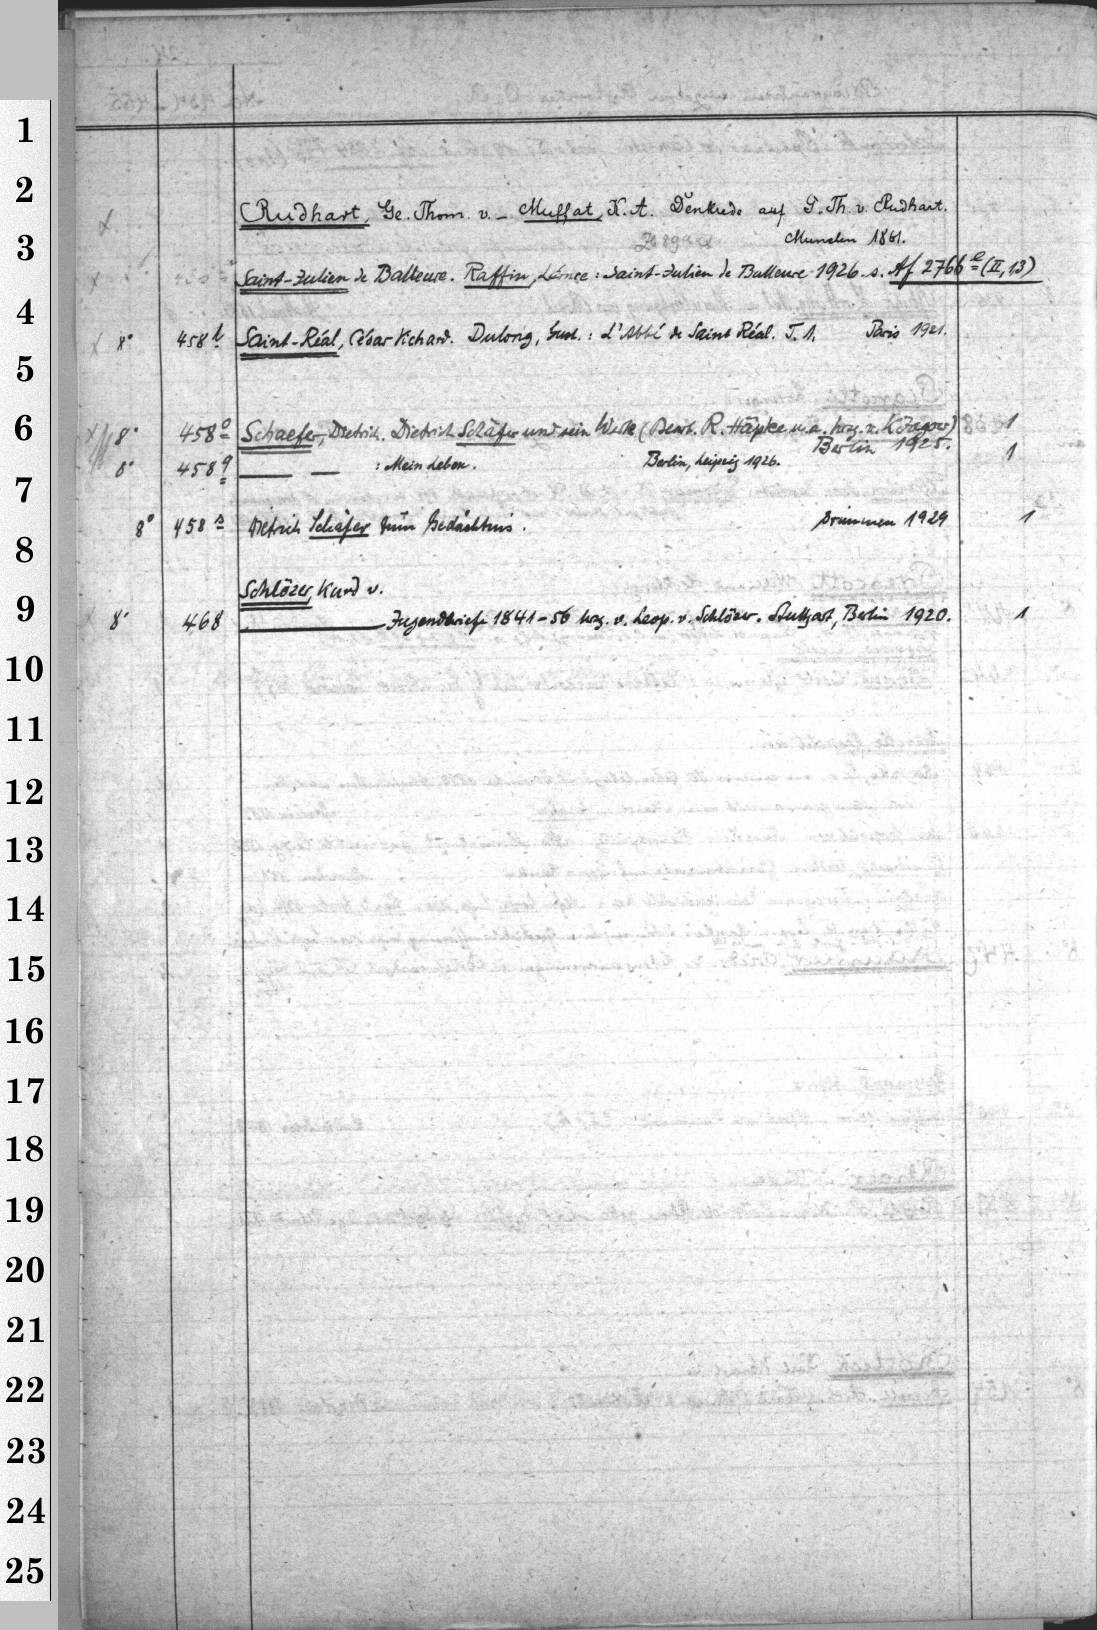 1
2
(Rudhart, Ge. Thom. v. – Muffat, K. A. Denkrede auf G. Th. v. Rudhart.
München 1861.
3
Saint-Julien de Balleure. Raffin, Léonce: Saint-Julien de Balleure 1926. s. Af 2766 e (II, 13)
4
8° 458 k Saint-Réal, César Vichard. Dulong, Gust.: L'Abbé de Saint Réal. T. 1. Paris 1921.
5
6
8° 458 o Schaefer, Dietrich. Dietrich Schäfer und sein Werk (Bearb. R. Häpke u. a. hrsg. v. K. Jagow) 1
Berlin 1925.
8° 458 q — — : Mein Leben. Berlin, Leipzig 1926. 1
7
8° 458 s Dietrich Schäfer zum Gedächtnis. Bremen 1929 1
8
Schlözer, Kurd v.
9
8° 468 — Jugendbriefe 1841–56 hrsg. v. Leop. v. Schlözer. Stuttgart, Berlin 1920. 1
10
11
12
13
14
15
16
17
18
19
20
21
22
23
24
25